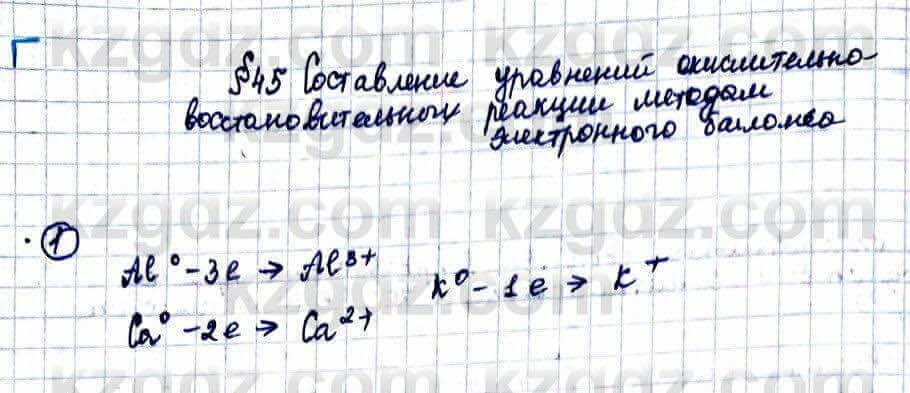 §45 Составление уравнений окислительно-
восстановительных реакции методом
электронного баланса
1
Al⁰ - 3e → Al³⁺ K⁰ - 1e → K⁺
Ca⁰ - 2e → Ca²⁺
kzgdz.com